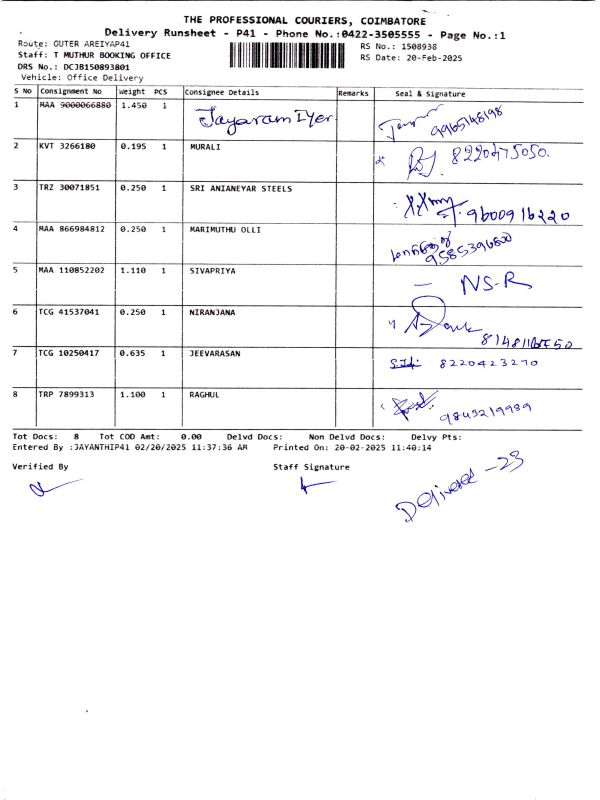 THE PROFESSIONAL COURIERS, COIMBATORE
Delivery Runsheet - P41 - Phone No.:0422-3505555 - Page No.:1
Route: OUTER AREIYAP41 RS No.: 1508938
Staff: T MUTHUR BOOKING OFFICE RS Date: 20-Feb-2025
DRS No.: DCJB150893801
Vehicle: Office Delivery
S No Consignment No Weight PCS Consignee Details Remarks Seal & Signature
1 MAA 9000066880 1.450 1 Jayaram Iyer 9965148198
2 KVT 3266180 0.195 1 MURALI 8220475050.
3 TRZ 30071851 0.250 1 SRI ANIANEYAR STEELS 9600916220
4 MAA 866984812 0.250 1 MARIMUTHU OLLI 9585396800
5 MAA 110852202 1.110 1 SIVAPRIYA — NS-R
6 TCG 41537041 0.250 1 NIRANJANA
7 TCG 10250417 0.635 1 JEEVARASAN 8220423270
8 TRP 7899313 1.100 1 RAGHUL 9843219989
Tot Docs: 8 Tot COD Amt: 0.00 Delvd Docs: Non Delvd Docs: Delvy Pts:
Entered By :JAYANTHIP41 02/20/2025 11:37:36 AM Printed On: 20-02-2025 11:40:14
Verified By Staff Signature
Delivered - 23